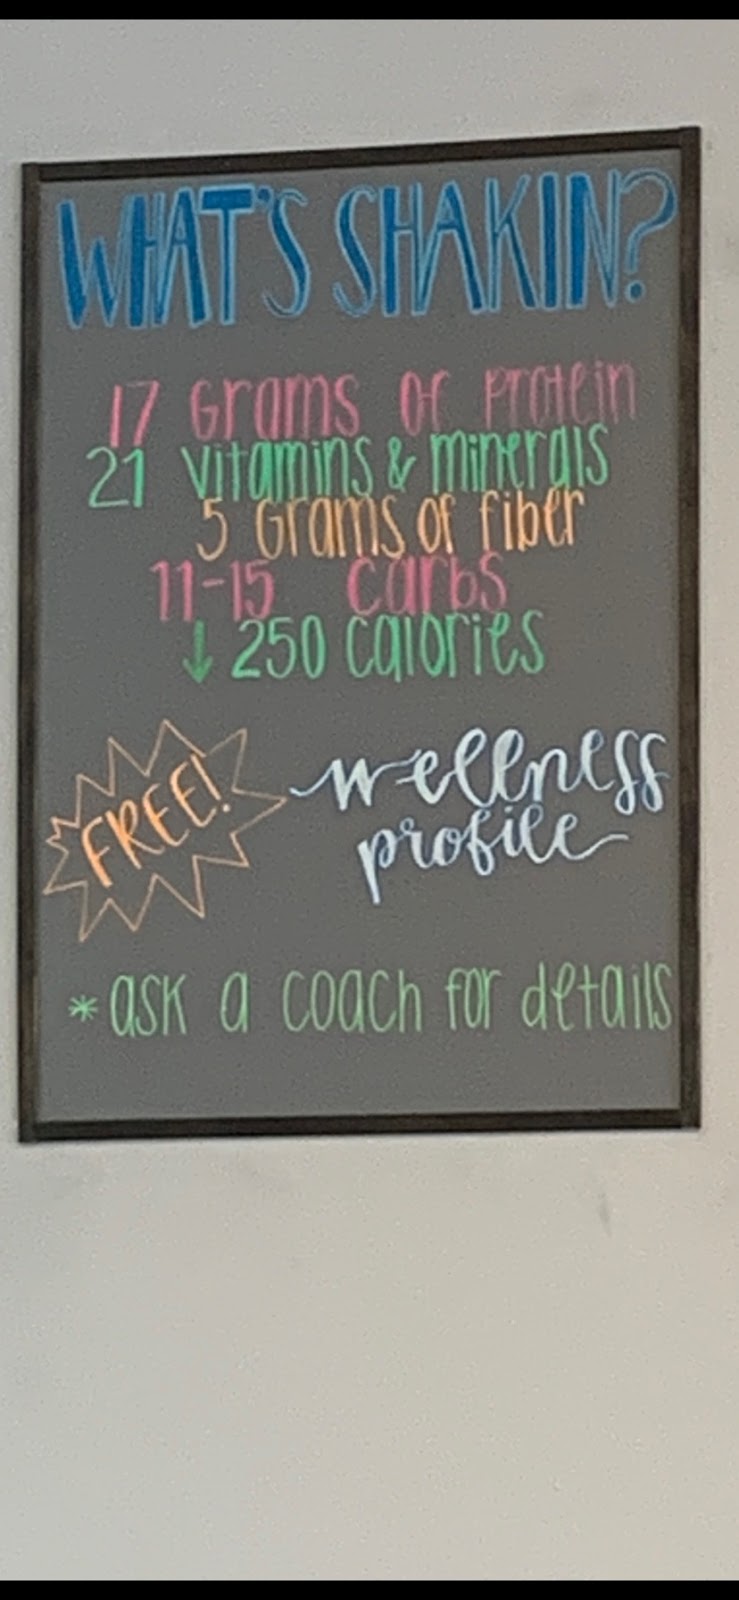 WHAT'S SHAKIN?
17 Grams of Protein
21 Vitamins & minerals
5 Grams of fiber
11-15 carbs
↓ 250 calories
FREE!
wellness
profile
*ask a coach for details